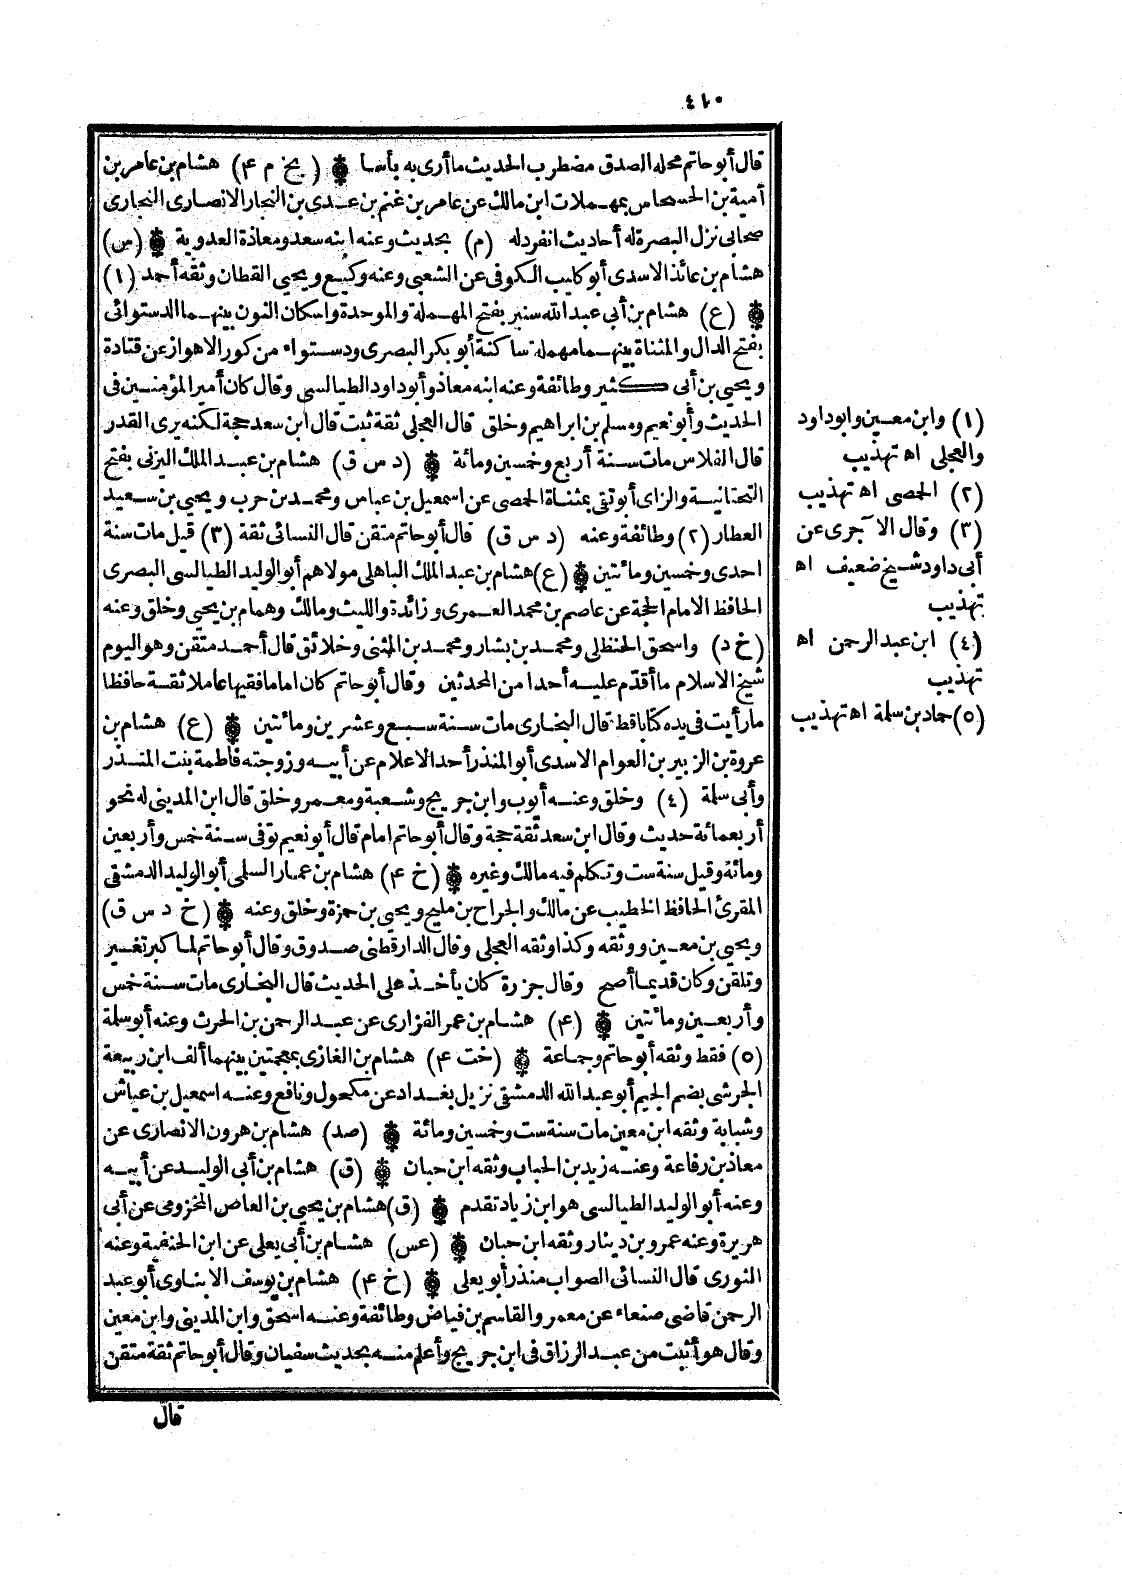 ٤١٠
قال أبو حاتم محله الصدق مضطرب الحديث ما أرى به بأسا (بخ م ٤) هشام بن عامر بن
أمية بن الحسحاس بمهملات ابن مالك عن عامر بن غنم بن عدى بن النجار الانصارى النجارى
صحابى نزل البصرة له أحاديث انفرد له (م) بحديث وعنه ابنه سعد ومعاذة العدوية (س)
هشام بن عائذ الاسدى أبو كليب الكوفى عن الشعبى وعنه وكيع ويحيى القطان وثقه أحمد (١)
(ع) هشام بن أبى عبد الله سنبر بفتح المهملة والموحدة واسكان النون بينهما الدستوائى
بفتح الدال والمثناة بينهما مهملة ساكنة أبو بكر البصرى ودستواء من كور الاهواز عن قتادة
ويحيى بن أبى كثير وطائفة وعنه ابنه معاذ وأبو داود الطيالسى وقال كان أمير المؤمنين فى
الحديث وأبو نعيم ومسلم بن ابراهيم وخلق قال العجلى ثقة ثبت قال ابن سعد حجة لكنه يرى القدر
قال الفلاس مات سنة أربع وخمسين ومائة (د س ق) هشام بن عبد الملك اليزنى بفتح
التحتانية والزاى أبو تقى بمثناة الحمصى عن اسمعيل بن عياس ومحمد بن حرب ويحيى بن سعيد
العطار (٢) وطائفة وعنه (د س ق) قال أبو حاتم متقن قال النسائى ثقة (٣) قيل مات سنة
احدى وخمسين ومائتين (ع) هشام بن عبد الملك الباهلى مولاهم أبو الوليد الطيالسى البصرى
الحافظ الامام الحجة عن عاصم بن محمد العمرى وزائدة والليث ومالك وهمام بن يحيى وخلق وعنه
(خ د) واسحق الحنظلى ومحمد بن بشار ومحمد بن المثنى وخلائق قال أحمد متقن وهو اليوم
شيخ الاسلام ما أقدّم عليه أحدا من المحدثين وقال أبو حاتم كان اماما فقيها عاملا ثقة حافظا
ما رأيت فى يده كتابا قط قال البخارى مات سنة سبع وعشرين ومائتين (ع) هشام بن
عروة بن الزبير بن العوام الاسدى أبو المنذر أحد الاعلام عن أبيه وزوجته فاطمة بنت المنذر
وأبى سلمة (٤) وخلق وعنه أيوب وابن جريج وشعبة ومعمر وخلق قال ابن المدينى له نحو
أربعمائة حديث وقال ابن سعد ثقة حجة وقال أبو حاتم امام قال أبو نعيم توفى سنة خمس وأربعين
ومائة وقيل سنة ست وتكلم فيه مالك وغيره (خ ٤) هشام بن عمار السلمى أبو الوليد الدمشقى
المقرئ الحافظ الخطيب عن مالك والجراح بن مليح ويحيى بن حمزة وخلق وعنه (خ د س ق)
ويحيى بن معين ووثقه وكذا وثقه العجلى وقال الدارقطنى صدوق وقال أبو حاتم لما كبر تغير
وتلقن وكان قديما أصح وقال جزرة كان يأخذ على الحديث قال البخارى مات سنة خمس
وأربعين ومائتين (٤) هشام بن عمر الفزارى عن عبد الرحمن بن الحرث وعنه أبو سلمة
(٥) فقط وثقه أبو حاتم وجماعة (خت ٤) هشام بن الغازى بمعجمتين بينهما ألف ابن ربيعة
الجرشى بضم الجيم أبو عبد الله الدمشقى نزيل بغداد عن مكحول ونافع وعنه اسمعيل بن عياش
وشبابة وثقه ابن معين مات سنة ست وخمسين ومائة (صد) هشام بن هرون الانصارى عن
معاذ بن رفاعة وعنه زيد بن الحباب وثقه ابن حبان (ق) هشام بن أبى الوليد عن أبيه
وعنه أبو الوليد الطيالسى هو ابن زياد تقدم (ق) هشام بن يحيى بن العاص المخزومى عن أبى
هريرة وعنه عمرو بن دينار وثقه ابن حبان (عس) هشام بن أبى يعلى عن ابن الحنفية وعنه
الثورى قال النسائى الصواب منذر أبو يعلى (خ ٤) هشام بن يوسف الابناوى أبو عبد
الرحمن قاضى صنعاء عن معمر والقاسم بن فياض وطائفة وعنه اسحق وابن المدينى وابن معين
وقال هو أثبت من عبد الرزاق فى ابن جريج وأعلم منه بحديث سفيان وقال أبو حاتم ثقة متقن
قال
(١) وابن معين وابو داود
والعجلى اه تهذيب
(٢) الحمصى اه تهذيب
(٣) وقال الآجرى عن
أبى داود شيخ ضعيف اه
تهذيب
(٤) ابن عبد الرحمن اه
تهذيب
(٥) حماد بن سلمة اه تهذيب